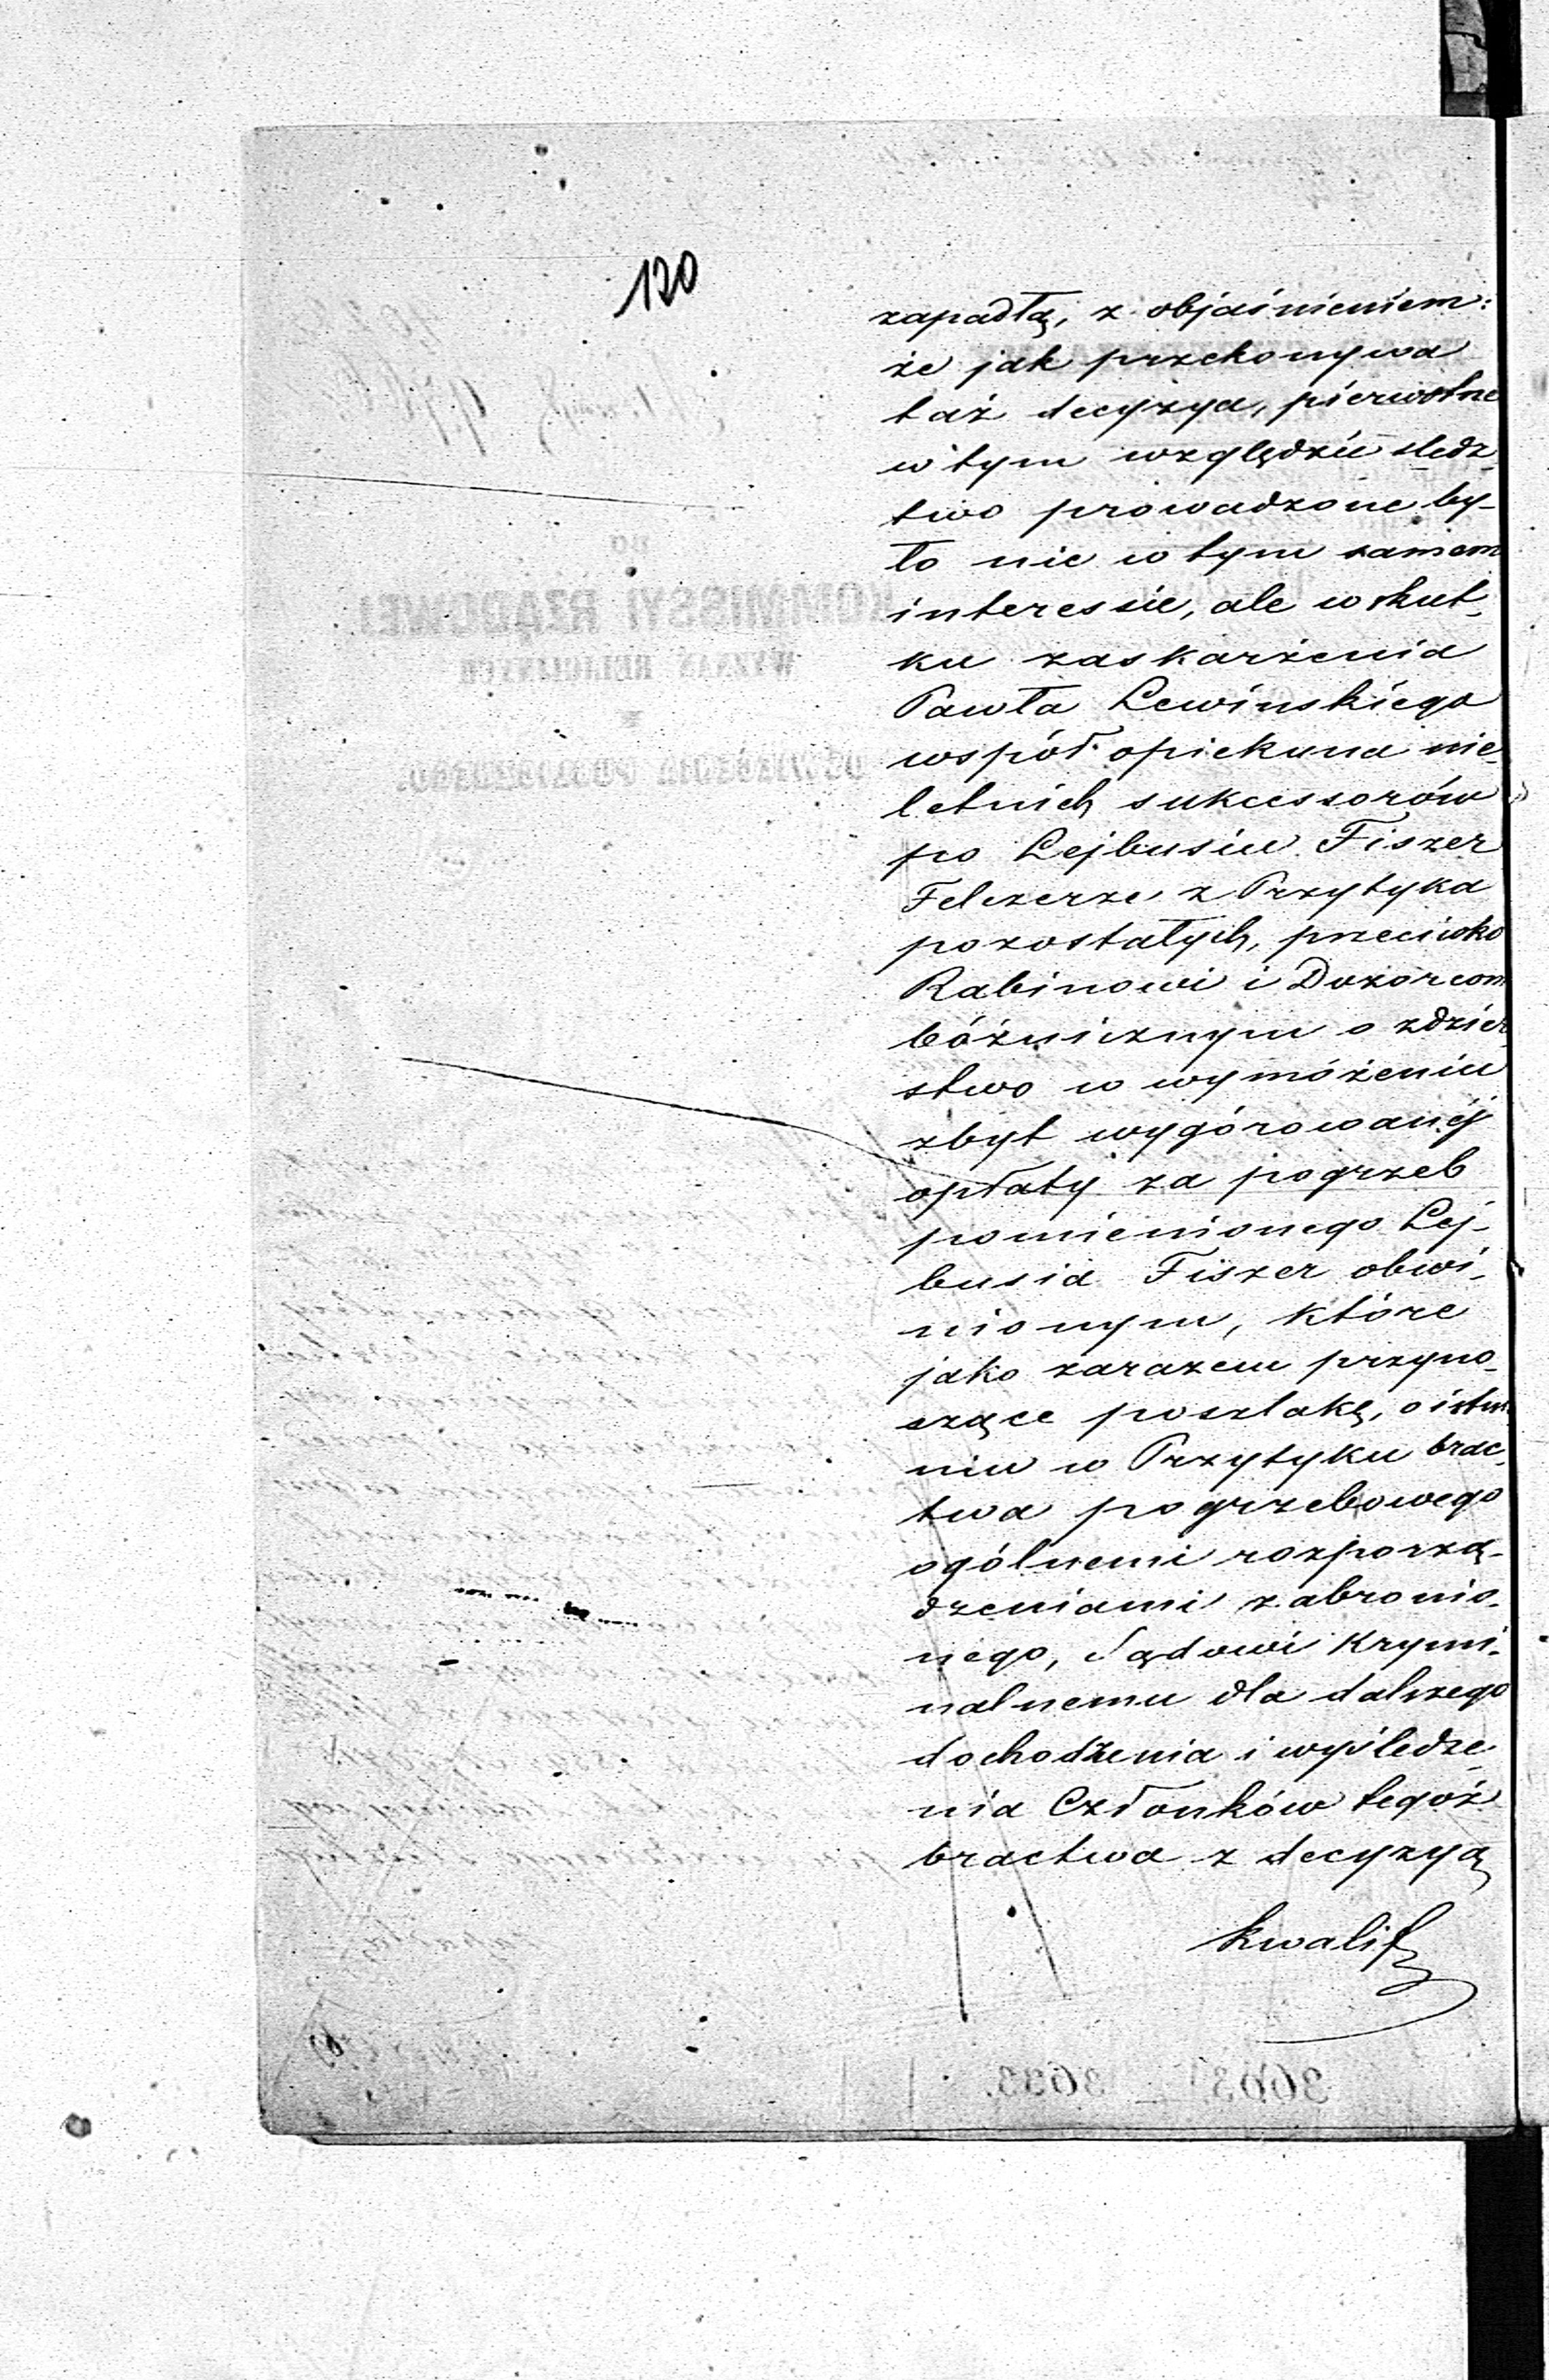 120
zapadłą, z objaśnieniem:
że jak przekonywa
taż decyzya, pierwotne
w tym względzie śledz-
two prowadzone by-
ło nie w tym samem
interessie, ale w skut-
ku zaskarżenia
Pawła Lewińskiego
współ opiekuna nie-
letnich sukcessorów
po Lejbusiu Fiszer
Felczerze z Przytyka
pozostałych, przeciwko
Rabinowi i Dozorcom
bóżnicznym o zdzier-
stwo w wymóżeniu
zbyt wygórowanéj
opłaty za pogrzeb
pomienionego Lej-
busia Fiszer obwi-
nionym, które
jako zarazem przyno-
szące poszlakę, o istnie
niu w Przytyku brac-
twa pogrzebowego
ogólnemi rozporzą-
dzeniami zabronio-
nego, Sądowi Krymi-
nalnemu dla dalszego
dochodzenia i wyśledze-
nia Członków tegoż
bractwa z decyzyą
kwalif
KOMMISSYI RZĄDOWEJ
WYZNAŃ RELIGIJNYCH
OŚWIECENIA PUBLICZNEGO.